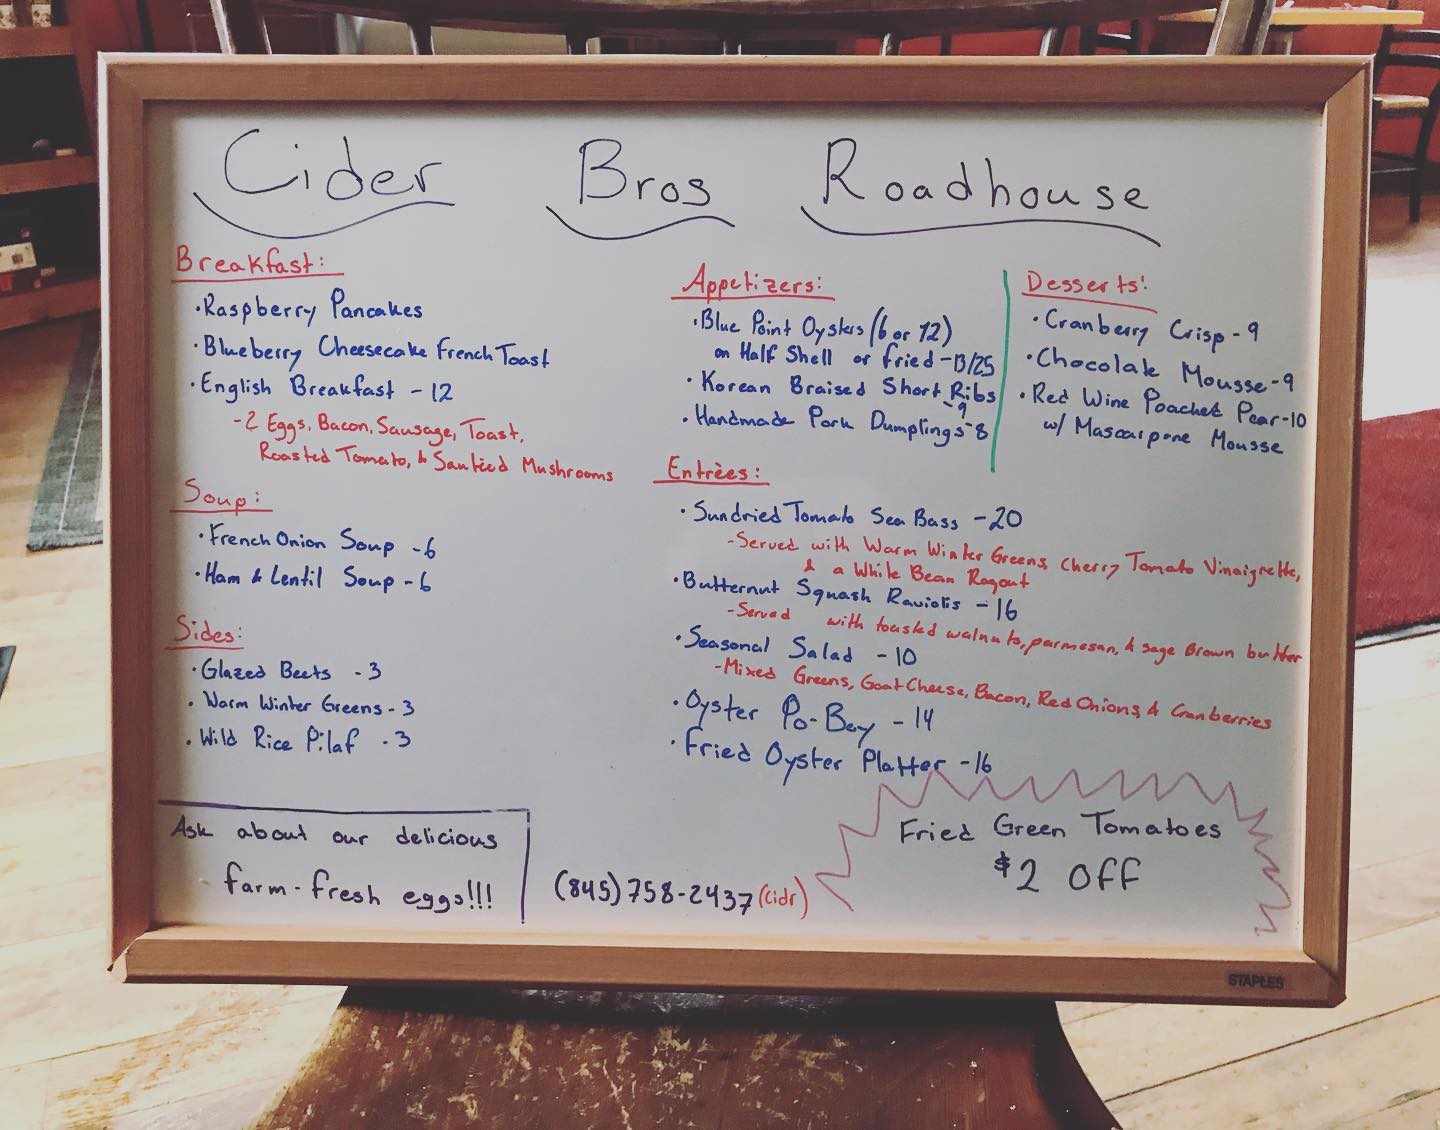 Cider Bros Roadhouse
Breakfast:
·Raspberry Pancakes
·Blueberry Cheesecake French Toast
·English Breakfast - 12
-2 Eggs, Bacon, Sausage, Toast,
Roasted Tomato, & Sautéed Mushrooms
Soup:
·French Onion Soup - 6
·Ham & Lentil Soup - 6
Sides:
·Glazed Beets - 3
·Warm Winter Greens - 3
·Wild Rice Pilaf - 3
Ask about our delicious
farm-fresh eggs!!!
Appetizers:
·Blue Point Oysters (6 or 12)
on Half Shell or fried - 13/25
·Korean Braised Short Ribs
-9
·Handmade Pork Dumplings - 8
Desserts:
·Cranberry Crisp - 9
·Chocolate Mousse - 9
·Red Wine Poached Pear - 10
w/ Mascarpone Mousse
Entrèes:
·Sundried Tomato Sea Bass - 20
-Served with Warm Winter Greens, Cherry Tomato Vinaigrette,
& a White Bean Ragout
·Butternut Squash Raviolis - 16
-Served with toasted walnuts, parmesan, & sage Brown butter
·Seasonal Salad - 10
-Mixed Greens, Goat Cheese, Bacon, Red Onions, & Cranberries
·Oyster Po-Boy - 14
·Fried Oyster Platter - 16
(845) 758-2437 (cidr)
Fried Green Tomatoes
$2 OFF
STAPLES